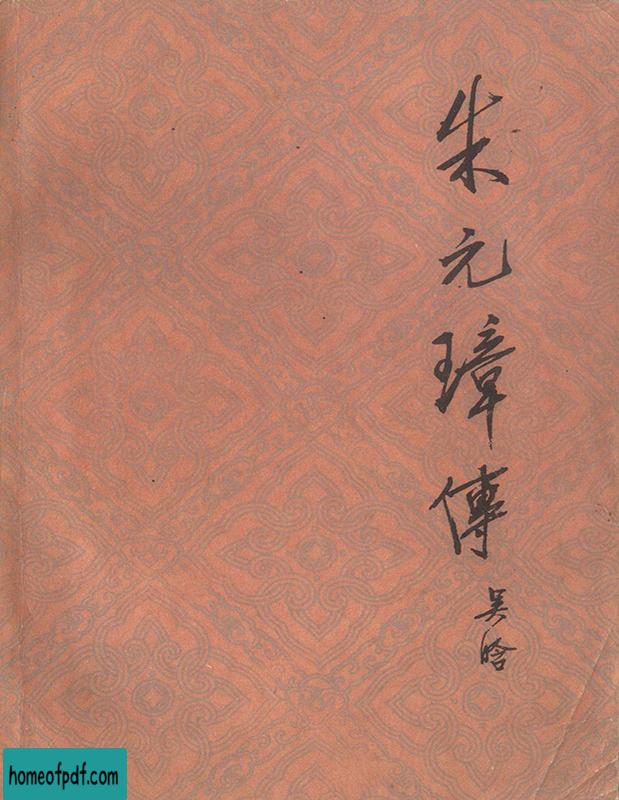 朱元璋傳
吴晗
homeofpdf.com